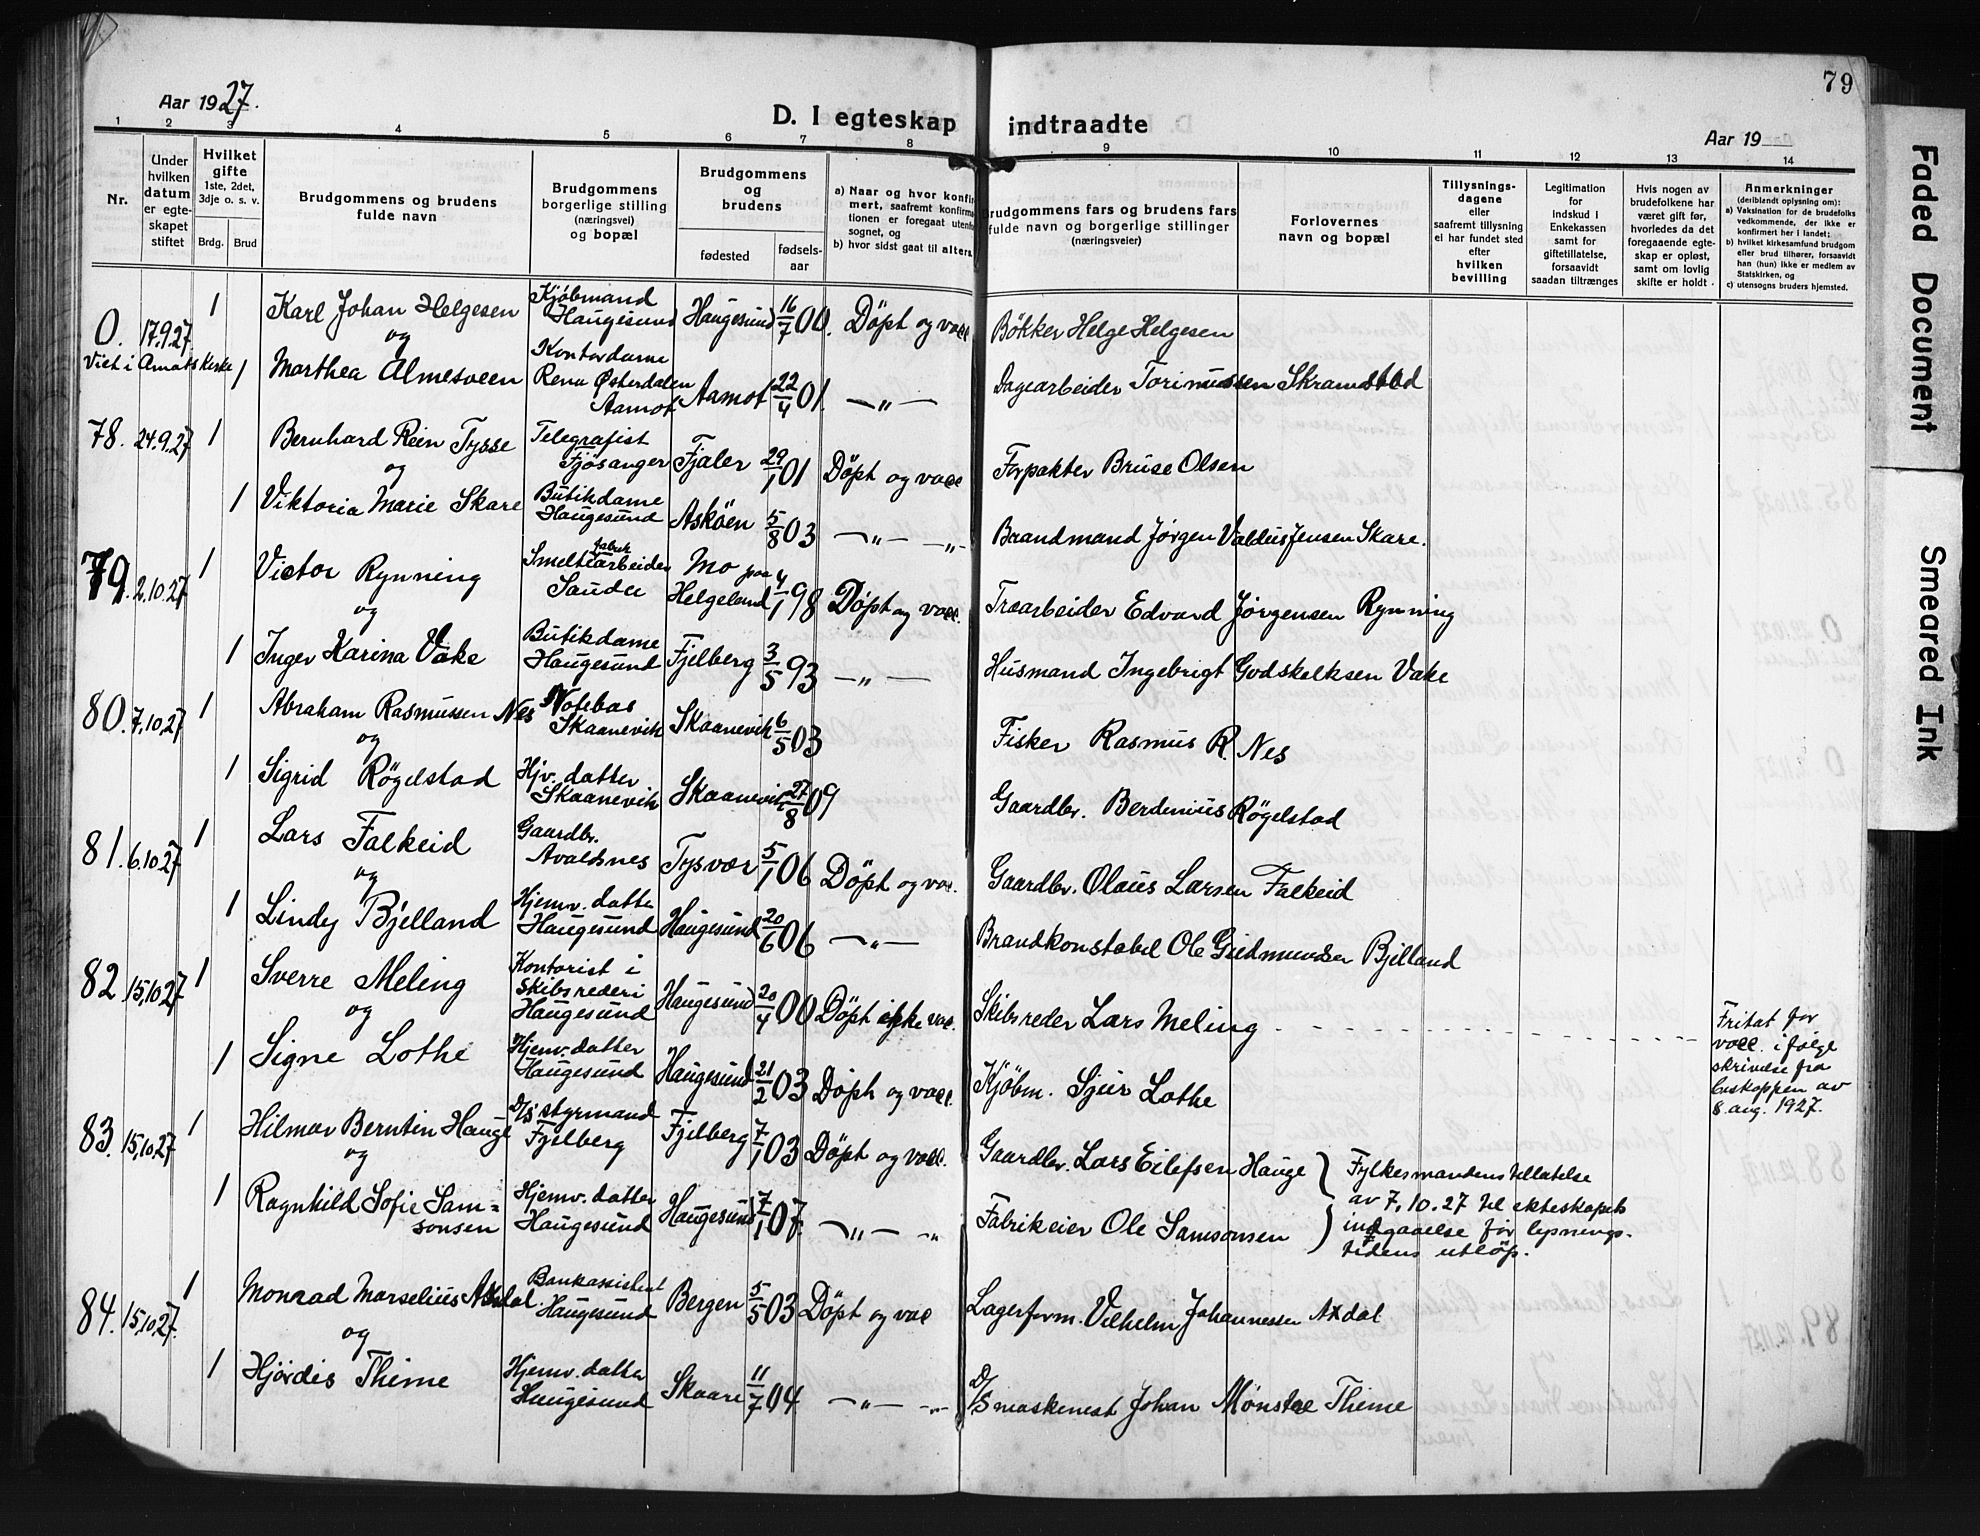 79
Aar 1927.
D. I egteskap indtraadte
Aar 19
1 2 3 4 5 6 7 8 9 10 11 12 13 14
Nr.
Under hvilken datum er egteskapet stiftet
Hvilket gifte
1ste, 2det, 3dje o. s. v.
Brdg. Brud
Brudgommens og brudens fulde navn
Brudgommens borgerlige stilling (næringsvei) og bopæl
Brudgommens og brudens
fødested fødselsaar
a) Naar og hvor konfirmert, saafremt konfirmationen er foregaat utenfor sognet, og
b) hvor sidst gaat til alters.
Brudgommens fars og brudens fars fulde navn og borgerlige stillinger (næringsveier)
Forlovernes navn og bopæl
Tillysningsdagene eller saafremt tillysning ei har fundet sted efter hvilken bevilling
Legitimation for indskud i Enkekassen samt for giftetillatelse, forsaavidt saadan tiltrænges
Hvis nogen av brudefolkene har været gift før, hvorledes da det foregaaende egteskap er opløst, samt om lovlig skifte er holdt.
Anmerkninger (deriblandt oplysning om):
a) Vaksination for de brudefolks vedkommende, der ikke er konfirmert her i landet;
b) hvilket kirkesamfund brudgom eller brud tilhører, forsaavidt han (hun) ikke er medlem av Statskirken, og
c) utensogns bruders hjemsted.
0. 17.9.27 1 Karl Johan Helgesen Kjöbmand Haugesund Haugesund 16/7 00. Döpt og vacc Bökker Helge Helgesen
og
Viet i Amots Kirke 1 Marthea Almesveen Kontordame Rena Østerdalen Aamot Aamot 22/4 01. —„— Dagearbeider Skramstad
78. 24.9.27 1 Bernhard Rein Tysse Telegrafist Fjösanger Fjaler 29/1 01 Döpt og vacc Forpakter Bruse Olsen
og
1 Viktoria Marie Skare Butikdame Haugesund Askøen 5/8 03 —„— —„— Brandmand Jørgen Valdus Jensen Skare.
79. 2.10.27 1 Victor Rynning Smeltefabrikarbeider Sauda Mo paa Helgeland 4/1 98 Döpt og vacc. Træarbeider Edvard Jørgensen Rynning
og
1 Inger Karina Vake Butikdame Haugesund Fjelberg 3/5 93 —„— Husmand Ingebrigt Godskelksen Vake
80. 7.10.27 1 Abraham Rasmussen Nes Notebas Skaanevik Skaanevik 6/5 03 Fisker Rasmus R. Nes
og
1 Sigrid Røgelstad Hjv. datter Skaanevik Skaanevik 27/8 09 Gaardbr. Berdinius Røgelstad
81. 6.10.27 1 Lars Falkeid Gaardbr. Avaldsnes Tysvær 5/1 06 Döpt og vac. Gaardbr. Olaus Larsen Falkeid
og
1 Lindy Bjelland Hjemv. datter Haugesund Haugesund 20/6 06 —„— Brandkonstabel Ole Gudmundsen Bjelland
82. 15.10.27 1 Sverre Meling Kontorist i Skibsrederi Haugesund Haugesund 20/4 00 Döpt ikke vac. Skibsreder Lars Meling Fritat for vacc. i følge skrivelse fra biskoppen av 8. aug. 1927.
og
1 Signe Lothe Hjemv. datter Haugesund Haugesund 21/2 03 Döpt og vacc. Kjöbm. Sjur Lothe
83. 15.10.27 1 Hilmar Berntin Hauge D/S styrmand Fjelberg Fjelberg 7/1 03 Döpt og vacc. Gaardbr. Lars Eilefsen Hauge } Fylkesmandens tillatelse
og av 7.10.27 til ekteskapets
1 Ragnhild Sofie Samsonsen Hjemv. datter Haugesund Haugesund 7/1 07. —„— —„ Fabrikeier Ole Samsonsen } indgaaelse før lysnings-
tidens utlöp.
84. 15.10.27. 1 Monrad Marselius Axdal. Bankassistent Haugesund Bergen 5/5 03 Döpt og vac Lagerform. Vilhelm Johannessen Axdal
og
1 Hjørdis Thime Hjemv. datter Haugesund Skaare 11/7 04 —„— —„— D/S maskinest Johan Mønstre Thime
Faded Document
Smeared Ink